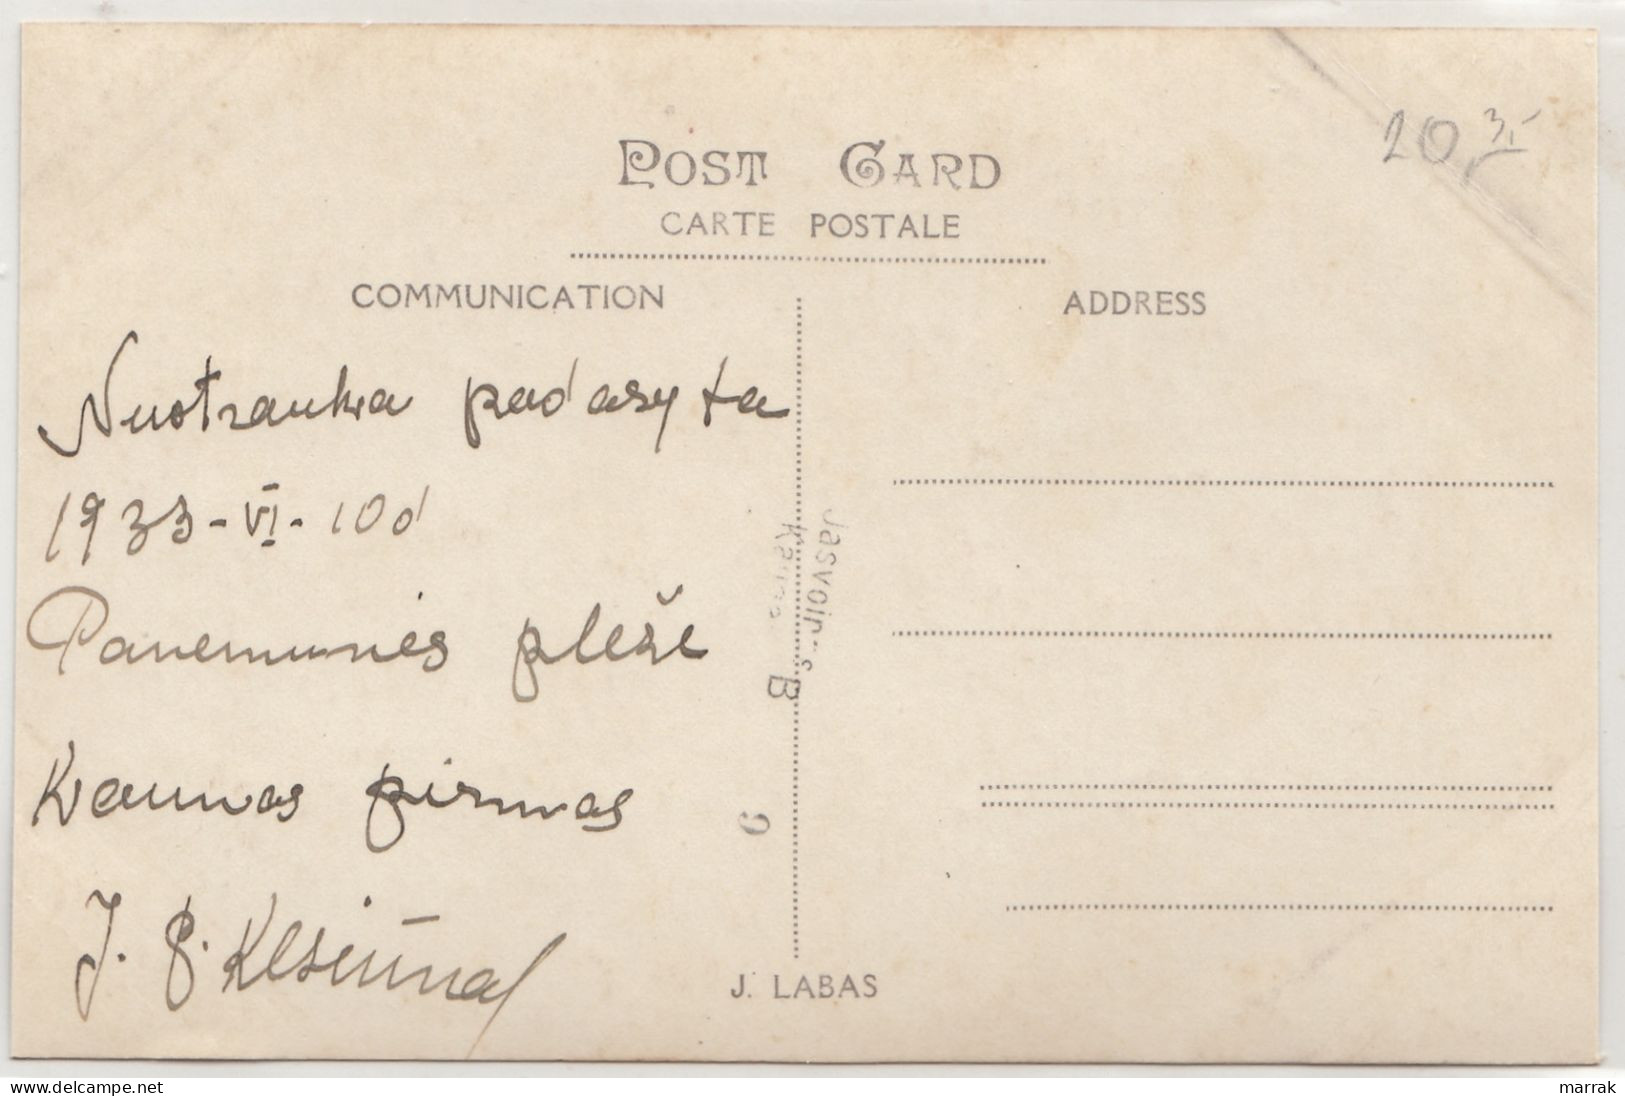 20,- 3,-
POST CARD
CARTE POSTALE
COMMUNICATION
ADDRESS
Nuotrauka padaryta
1933-VI-10d
Panemunės pleže
Kaunas pirmas
J. LABAS
www.delcampe.net
marrak